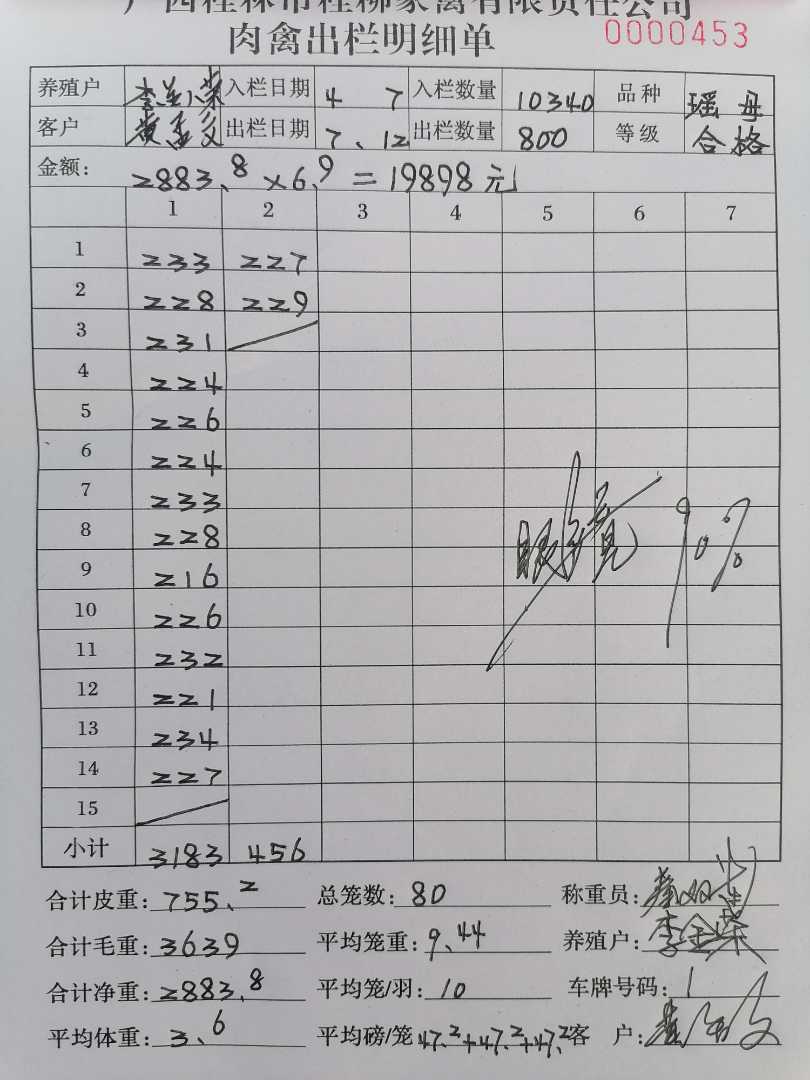 广西桂林市桂柳家禽有限责任公司
肉禽出栏明细单 0000453
养殖户 李金荣 入栏日期 4 7 入栏数量 10340 品种 瑶母
客户 出栏日期 7、12 出栏数量 800 等级 合格
金额: 2883.8×6.9=19898元
1 2 3 4 5 6 7
1 233 227
2 228 229
3 231
4 224
5 226
6 224
7 233
8 228
9 216
10 226
11 232
12 221
13 234
14 227
15
90%
小计 3183 456
合计皮重: 755.2 总笼数: 80 称重员:
合计毛重: 3639 平均笼重: 9.44 养殖户: 李金荣
合计净重: 2883.8 平均笼/羽: 10 车牌号码: 1
平均体重: 3.6 平均磅/笼 47.2+47.2+47.2 客户: